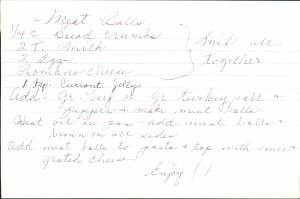 Meat Balls
1/4 c Bread crumbs
2 T. Milk
2 Eggs
Romano cheese
Mix all together
1 tsp. Currant Jelly
Add Gr. beef or gr turkey salt &
pepper & make meat balls
Heat oil in pan - add meat balls &
brown on all sides
Add meat balls to pasta & top with sauce &
grated cheese
Enjoy!!